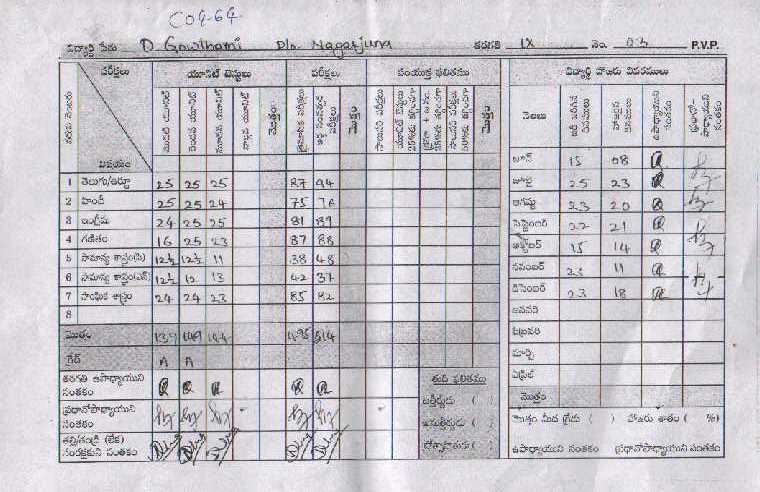 C04-64
విద్యార్థి పేరు D. Gowthami D/o. Nagarjuna తరగతి IX నెం. 03 P.V.P.
వరుస నెంబరు పరీక్షలు యూనిట్ టెస్టులు పరీక్షలు సంయుక్త ఫలితము
విషయం మొదటి యూనిట్ రెండవ యూనిట్ మూడవ యూనిట్ నాల్గవ యూనిట్ మొత్తం త్రైమాసిక పరీక్షలు మొత్తం మొత్తం
1 తెలుగు/ఉర్దూ 25 25 25 87 94
2 హిందీ 25 25 24 75 76
3 ఇంగ్లీషు 24 25 25 81 89
4 గణితం 16 25 23 87 88
5 సామాన్య శాస్త్రం 12½ 12½ 11 38 48
6 సామాన్య శాస్త్రం 12½ 12 13 42 37
7 సాంఘిక శాస్త్రం 24 24 23 85 82
8
మొత్తం 139 149 144 495 514
గ్రేడ్ A A
తరగతి ఉపాధ్యాయుని సంతకం
ప్రధానోపాధ్యాయుని సంతకం
తల్లి/తండ్రి (లేక) సంరక్షకుని సంతకం
తుది ఫలితము
ఉత్తీర్ణుడు ( )
( )
( )
విద్యార్థి హాజరు వివరములు
నెలలు హాజరైన దినములు ఉపాధ్యాయుని సంతకం ప్రధానోపాధ్యాయుని సంతకం
జూన్ 15 08
జూలై 25 23
ఆగష్టు 23 20
సెప్టెంబర్ 22 21
అక్టోబర్ 15 14
నవంబర్ 23 11
డిసెంబర్ 23 18
జనవరి
ఫిబ్రవరి
మార్చి
ఏప్రిల్
మొత్తం
మొత్తం మీద గ్రేడు ( ) హాజరు శాతం ( %)
ఉపాధ్యాయుని సంతకం ప్రధానోపాధ్యాయుని సంతకం